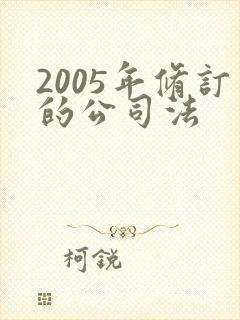 2005年修訂
的公司法
柯銳